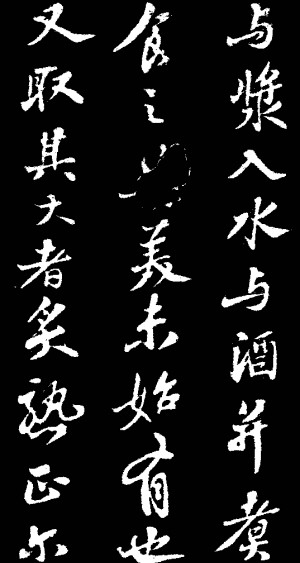 与漿入水与酒并煮
食之美未始有也
又取其大者炙熟正尔